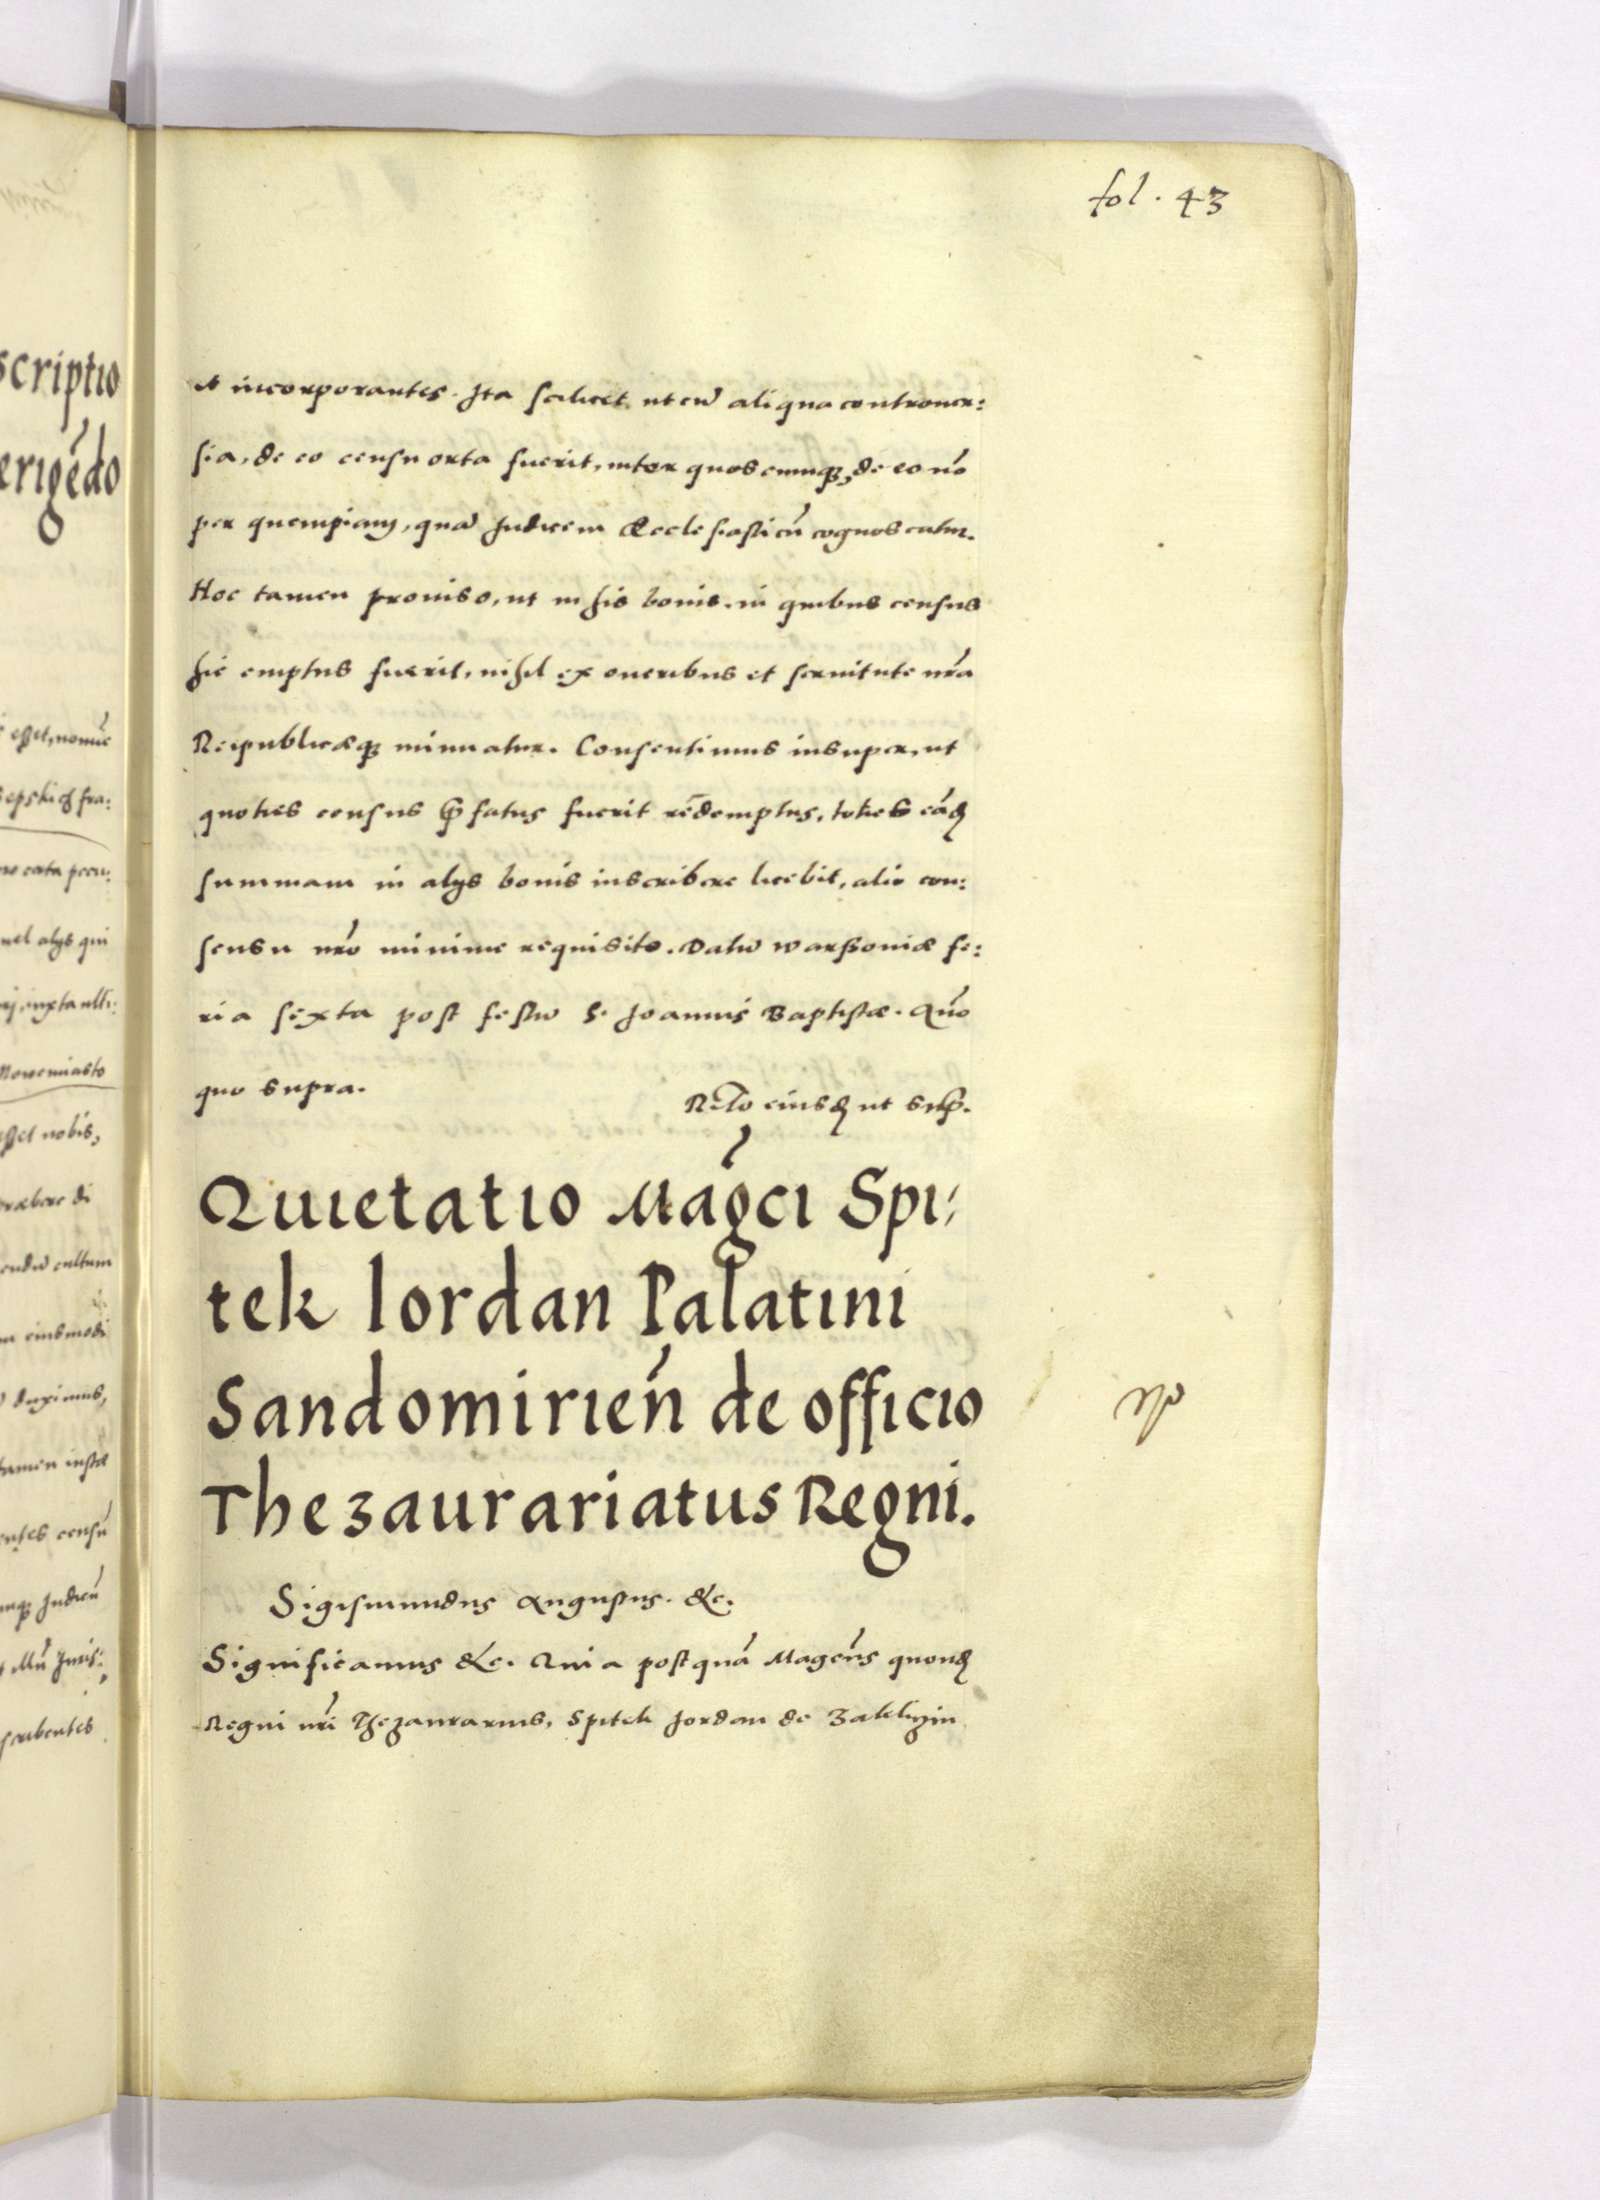 fol. 43
et incorporantes. Ita scilicet ut cũ aliqua controuer:
sia, de eo censu orta fuerit, inter quoscumqꝫ, de eo nõ
per quempiam, quã Judicem Ecclesiasticũ cognoscatur.
Hoc tamen prouiso, ut in his bonis, in quibus census
hic emptus fuerit, nihil ex oneribus et seruitute nr̃a
Reipublicæqꝫ minuatur. Consentimus insuper, ut
quoties census p̃fatus fuerit redemptus, toties eãd
summam in alijs bonis inscribere licebit, alio con:
sensu nr̃o minime requisito. Datũ Warssoviæ fe:
ria sexta post festũ S. Joannis Baptistæ. Año
quo supra.
Rel̃o eiusd ut sup̃.
Quietatio Mag̃ci Spi:
tek Iordan Palatini
Sandomirieñ de officio
Thezaurariatus Regni.
Sigismundus Augustus. &c.
Significamus &c. Quia postquã Magc̃us quond
Regni nr̃i Thezaurarius, Spitek Jordan de Zakliczin
scriptio
erigẽdo
esset, nomĩe
fra:
pecu:
uel alijs qui
iuxta ulti:
Nowemiasto
esset nobis,
di
cultum
eiusmodi
duximus,
tamen
censũ
Judicũ
Juris: